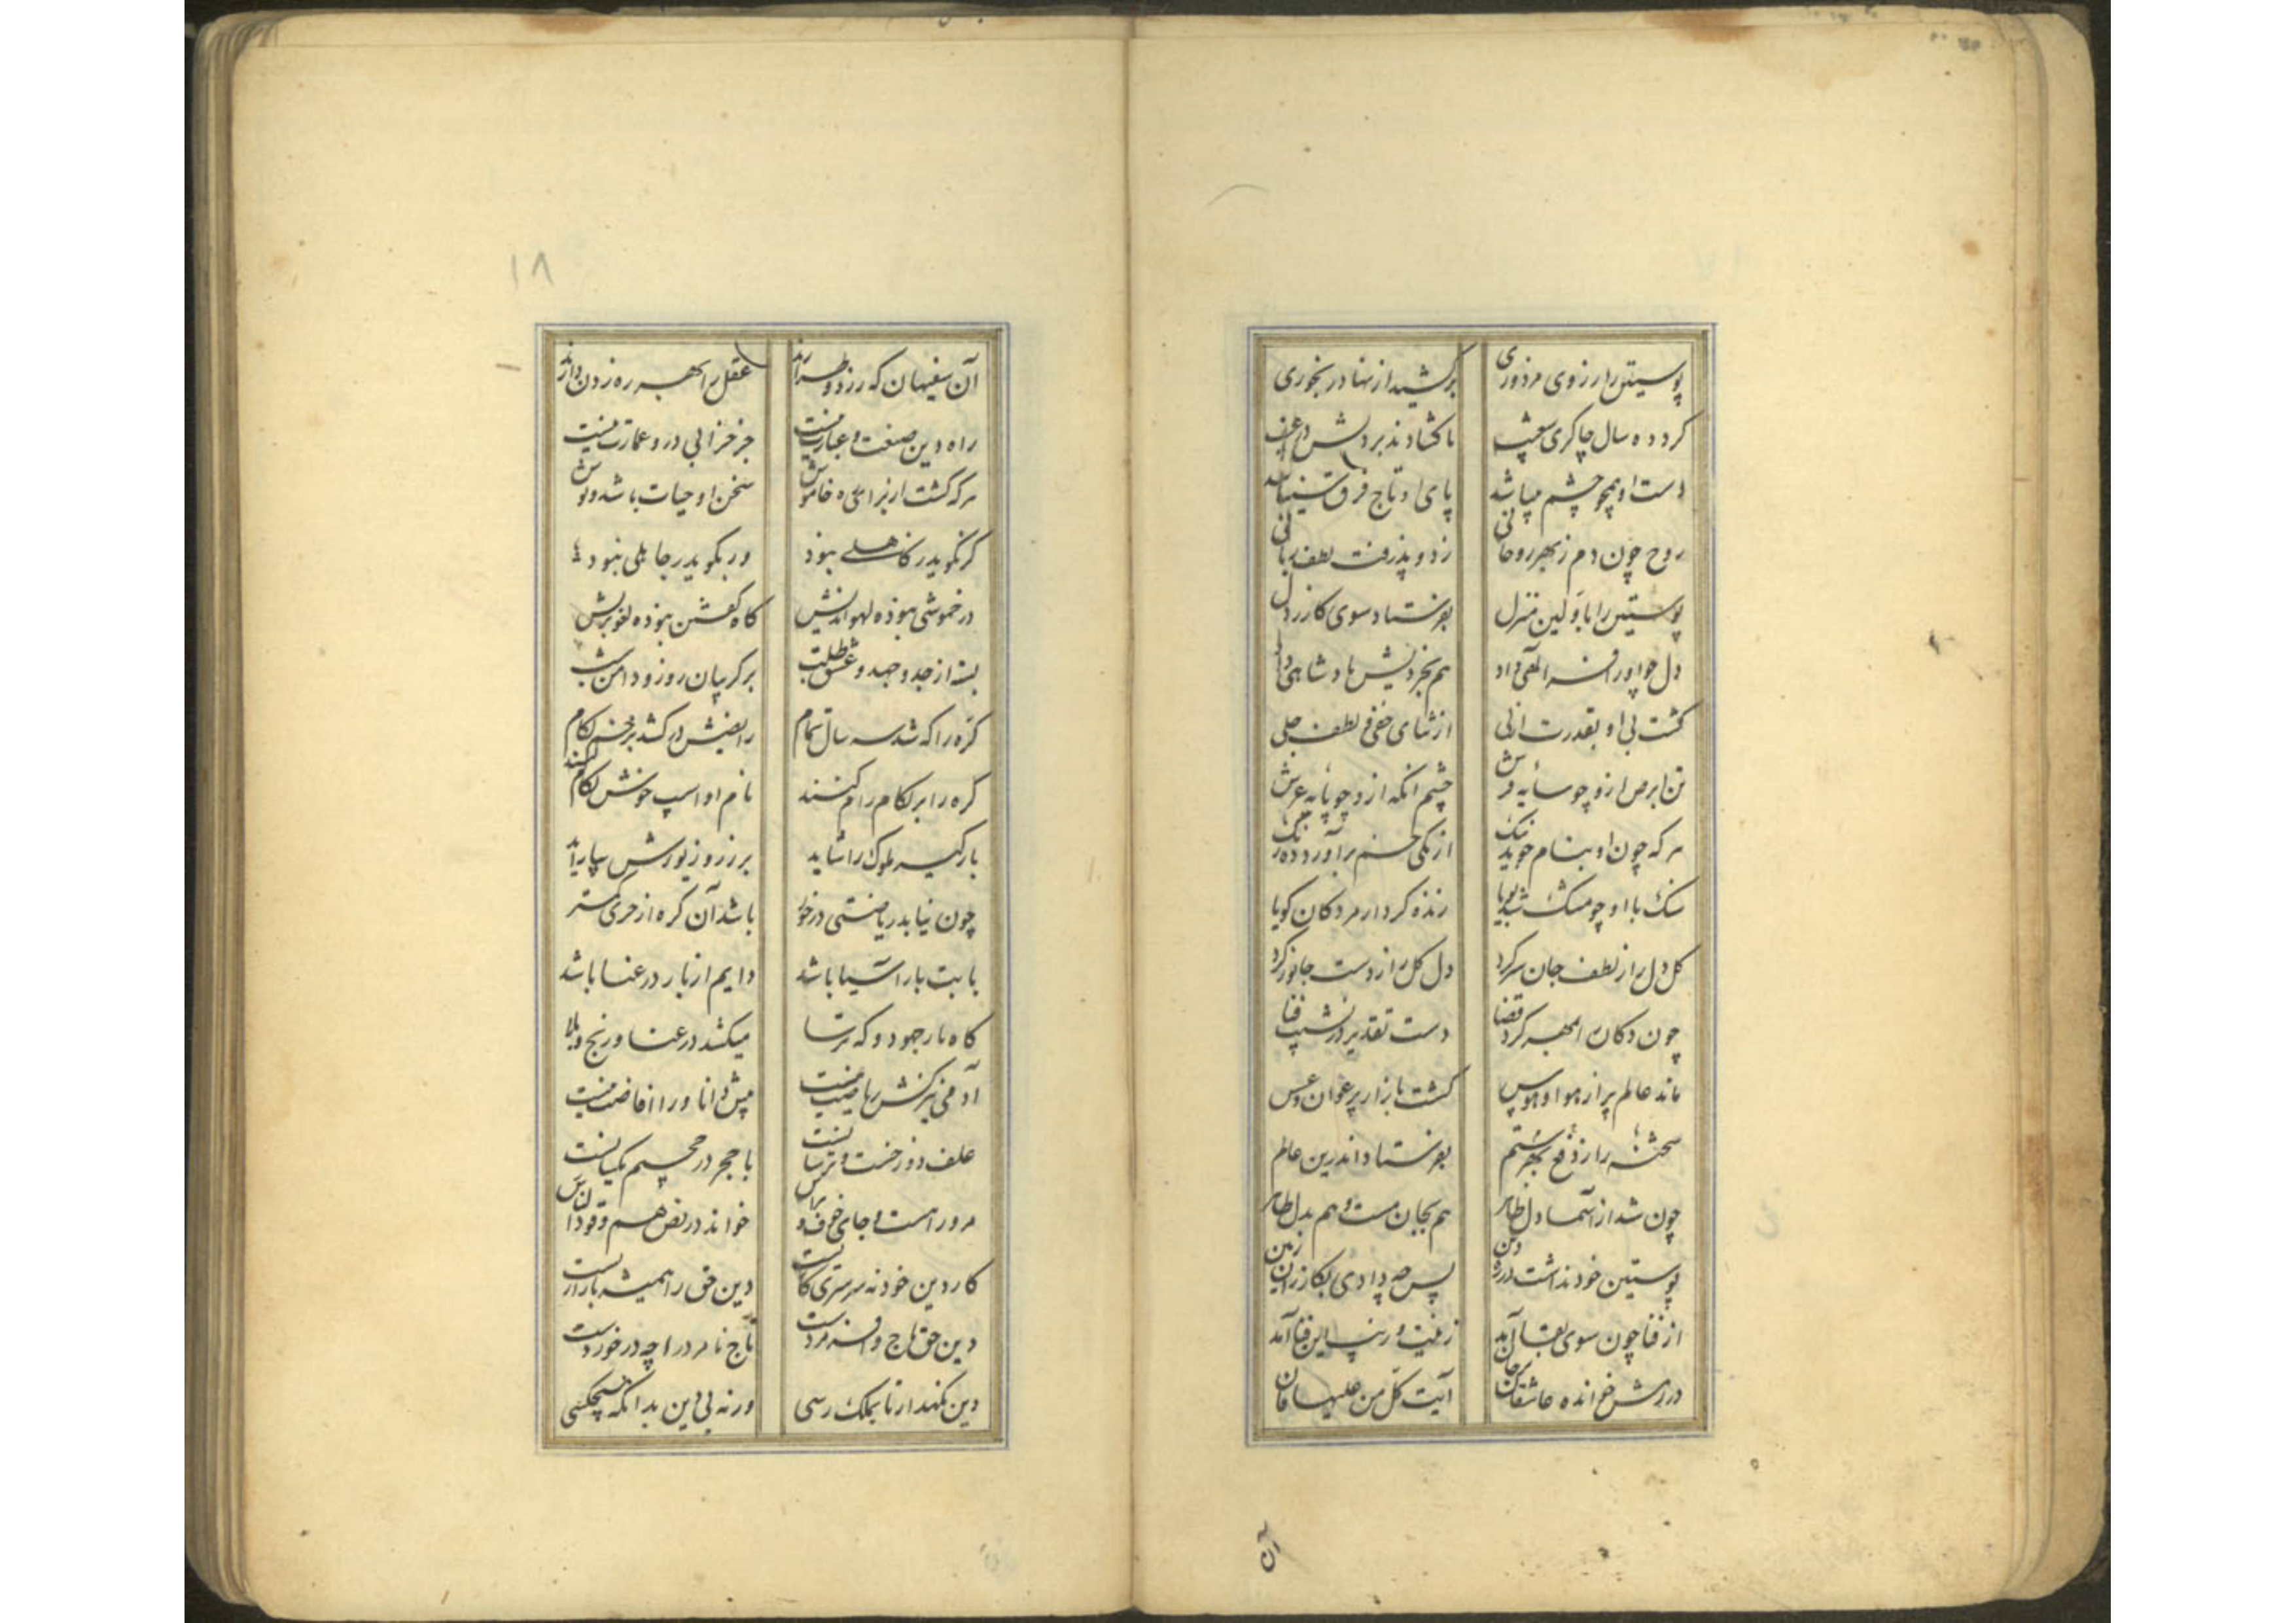 پوستین را ز روی مزدوری برکشید از نهاد رنجوری
کرد ده سال چاکری شعیب تا گشادند بر دلش در غیب
دست او همچو چشم بینا شد پای او تاج فرق سینا شد
روح چون دم ز بحر روحانی زد و پذرفت لطف ربانی
پوستین را باولین منزل بفرستاد سوی کازر دل
دل چو او را فر الهی داد هم بخردیش پادشاهی داد
گشت بی او بقدرت ازلی از ثنای خفی لطف جلی
تن ابرص ازو چو سایه فرش چشم اکمه ازو چو پایه عرش
هر که چون او بنام جوید ننک از یکی خم برآورد ده رنک
سنک با او چو مشک شد بویا زنده کردار مردکان کویا
کل دل را ز لطف جان سر کرد دل کل را ز دست جانور کرد
چون دکان را بمهر کرد قضا دست تقدیر در نشیب فنا
ماند عالم پر از هوا و هوس گشت بازار پر عوان و عسس
شحنه را ز دفع بهر ستم بفرستاد اندرین عالم
چون شد از آسمان دل ظاهر هم بجان مست و هم بدل طاهر
پوستین خود نداشت در ره دین پس چه دادی بکازران زمین
از فنا چون سوی بقا آمد زینت و زیب این فنا آمد
در رهش خوانده عاشقان بر جان آیت کل من علیها فان
آن
۱۸
آن سفیهان که دزد و طرارند عقل را بهر ره زدن دارند
راه دین صنعت و عبارت نیست جز خرابی درو عمارت نیست
هر که گشت از برای ره خاموش سخن او حیات باشد و نوش
گر نگوید ز کاهلی نبود ور بگوید ز جاهلی نبود
در خموشی نبوده لهو اندیش گاه گفتن نبوده لغو پریش
بسته از جد و جهد و عشق طلب بر گریبان روز و دامن شب
کره را که شد سه سال تمام رایضش در کشد بزخم لگام
کره را بر لکام رام کنند نام او اسپ خوش لکام کنند
بارگیر ملوک را شاید بزر و زیورش بیاراید
چون نیابد ریاضتی در خور باشد آن کره از خری کمتر
بابت بار آسیا باشد دایم از بار در عنا باشد
گاه بار جهود و گه ترسا میکشد در عنا و رنج و بلا
آدمی نیز کش ریاضت نیست پیش دانا ورا افاضت نیست
علف دوزخست و ترسانست با حجر در جحیم یکسانست
مر ورا هست جای خوف و هراس خواند در نص هم وقودالناس
کار دین خود نه سرسری کاریست دین حق را همیشه بازاریست
دین حق تاج و افسر مردست تاج نامرد را چه در خوردست
دین نگهدار تا بملک رسی ورنه بی دین بدانکه هیچکسی